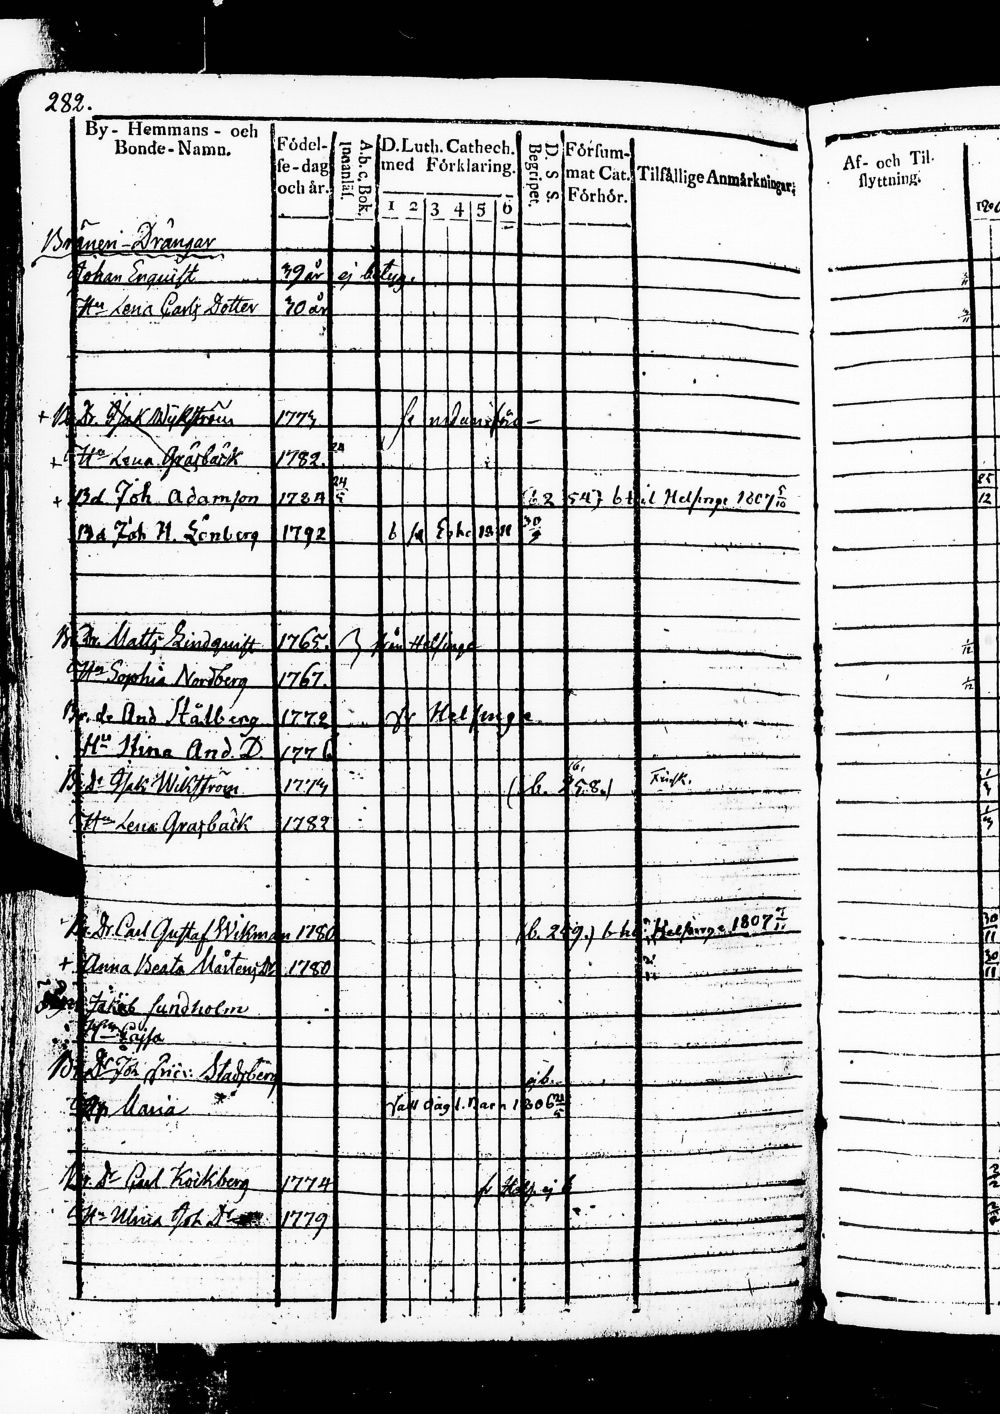 282.
By- Hemmans- och Bonde-Namn.
Födel-se-dag och år.
A.b.c. Bok. innanläs.
D. Luth. Cathech. med Förklaring.
1 2 3 4 5 6
D. S. S. Begriper.
Försum-mat Cat. Förhör.
Tilfällige Anmärkningar;
Af- och Til-flyttning.
Bräneri-Drängar
Johan Enquist 39 år ej betyg.
Hu Lena Carls Dotter 30 år
+ Dr. Isak Wikström 1773
+ Hu Lena Gräsbäck 1782.
+ Bd Joh Adamson 1784 54) b til Helsinge 1807
Bd Joh H. Lönberg 1792
Br Dr. Matts Lindquist 1765. från Helsinge
Hu Sophia Nordberg 1767.
Br. dr And Stålberg 1772 fr Helsinge
Hu Stina And. D. 1776
Br Dr Isak Wikström 1773 (b. 258.)
Hu Lena Gräsbäck 1782
Br Dr. Carl Gustaf Wikman 1780 (b. 259.) Helsinge 1807
+ Anna Beata Mårtens Dr 1780
Jakob Sundholm
Hu Cajsa
Br Dr Joh Stadsberg
Maria 1806
Br. Dr CarlKöckberg 1774
Hu Ulrica Joh Dr 1779